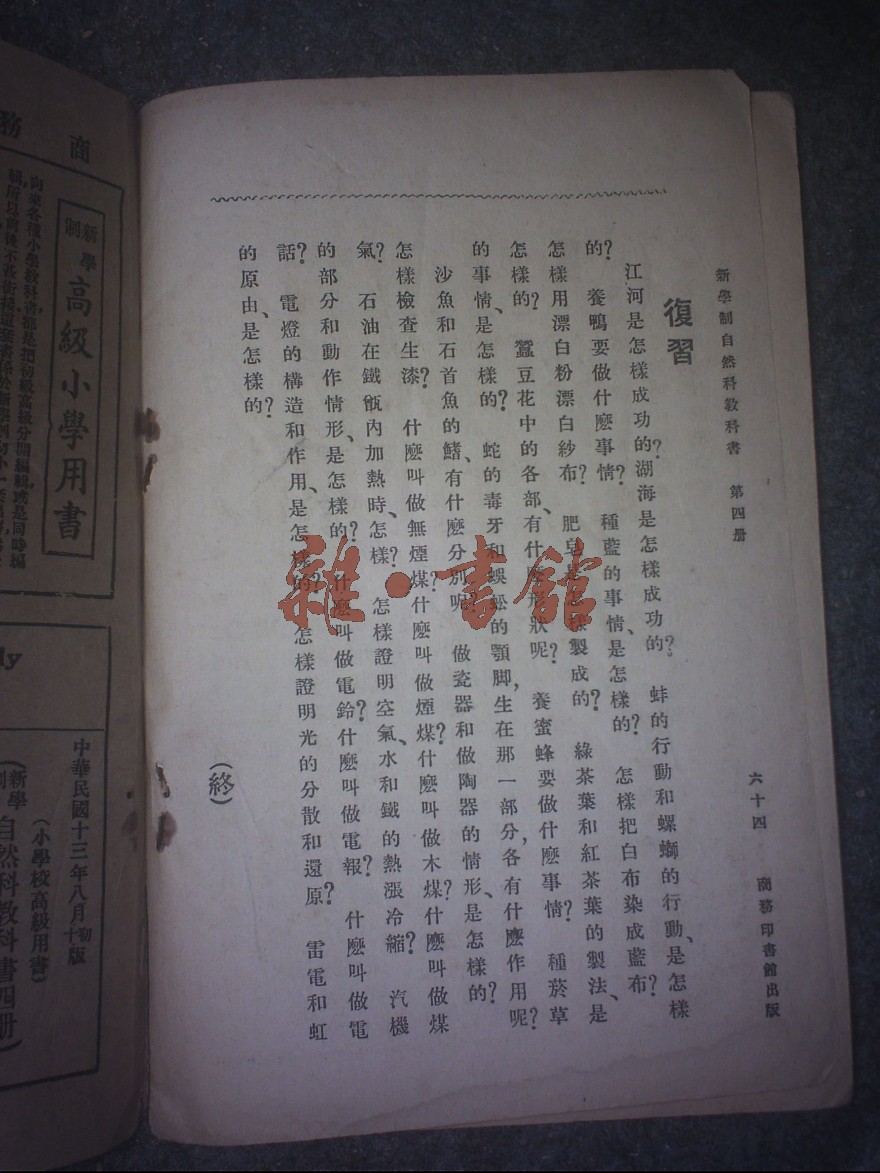 新學制自然科教科書 第四册
六十四 商務印書館出版
復習
江河是怎樣成功的?湖海是怎樣成功的? 蚌的行動和螺螄的行動、是怎樣
的? 養鴨要做什麽事情? 種藍的事情、是怎樣的? 怎樣把白布染成藍布?
怎樣用漂白粉漂白紗布? 肥皂是怎樣製成的? 綠茶葉和紅茶葉的製法、是
怎樣的? 蠶豆花中的各部、有什麽形狀呢? 養蜜蜂要做什麽事情? 種菸草
的事情、是怎樣的? 蛇的毒牙和蜈蚣的顎脚,生在那一部分,各有什麽作用呢?
沙魚和石首魚的鰭、有什麽分別呢? 做瓷器和做陶器的情形、是怎樣的?
怎樣檢查生漆? 什麽叫做無煙煤?什麽叫做煙煤?什麽叫做木煤?什麽叫做煤
氣? 石油在鐵甑內加熱時、怎樣? 怎樣證明空氣、水和鐵的熱漲冷縮? 汽機
的部分和動作情形、是怎樣的? 什麽叫做電鈴?什麽叫做電報? 什麽叫做電
話? 電燈的構造和作用、是怎樣的? 怎樣證明光的分散和還原? 雷電和虹
的原由、是怎樣的?
(終)
雜·書館
商務
新學制
高級小學用書
向來各種小學教科書都是把初級高級分開編輯或是同時編
中華民國十三年八月初版
(小學校高級用書)
(新學制自然科教科書四册)